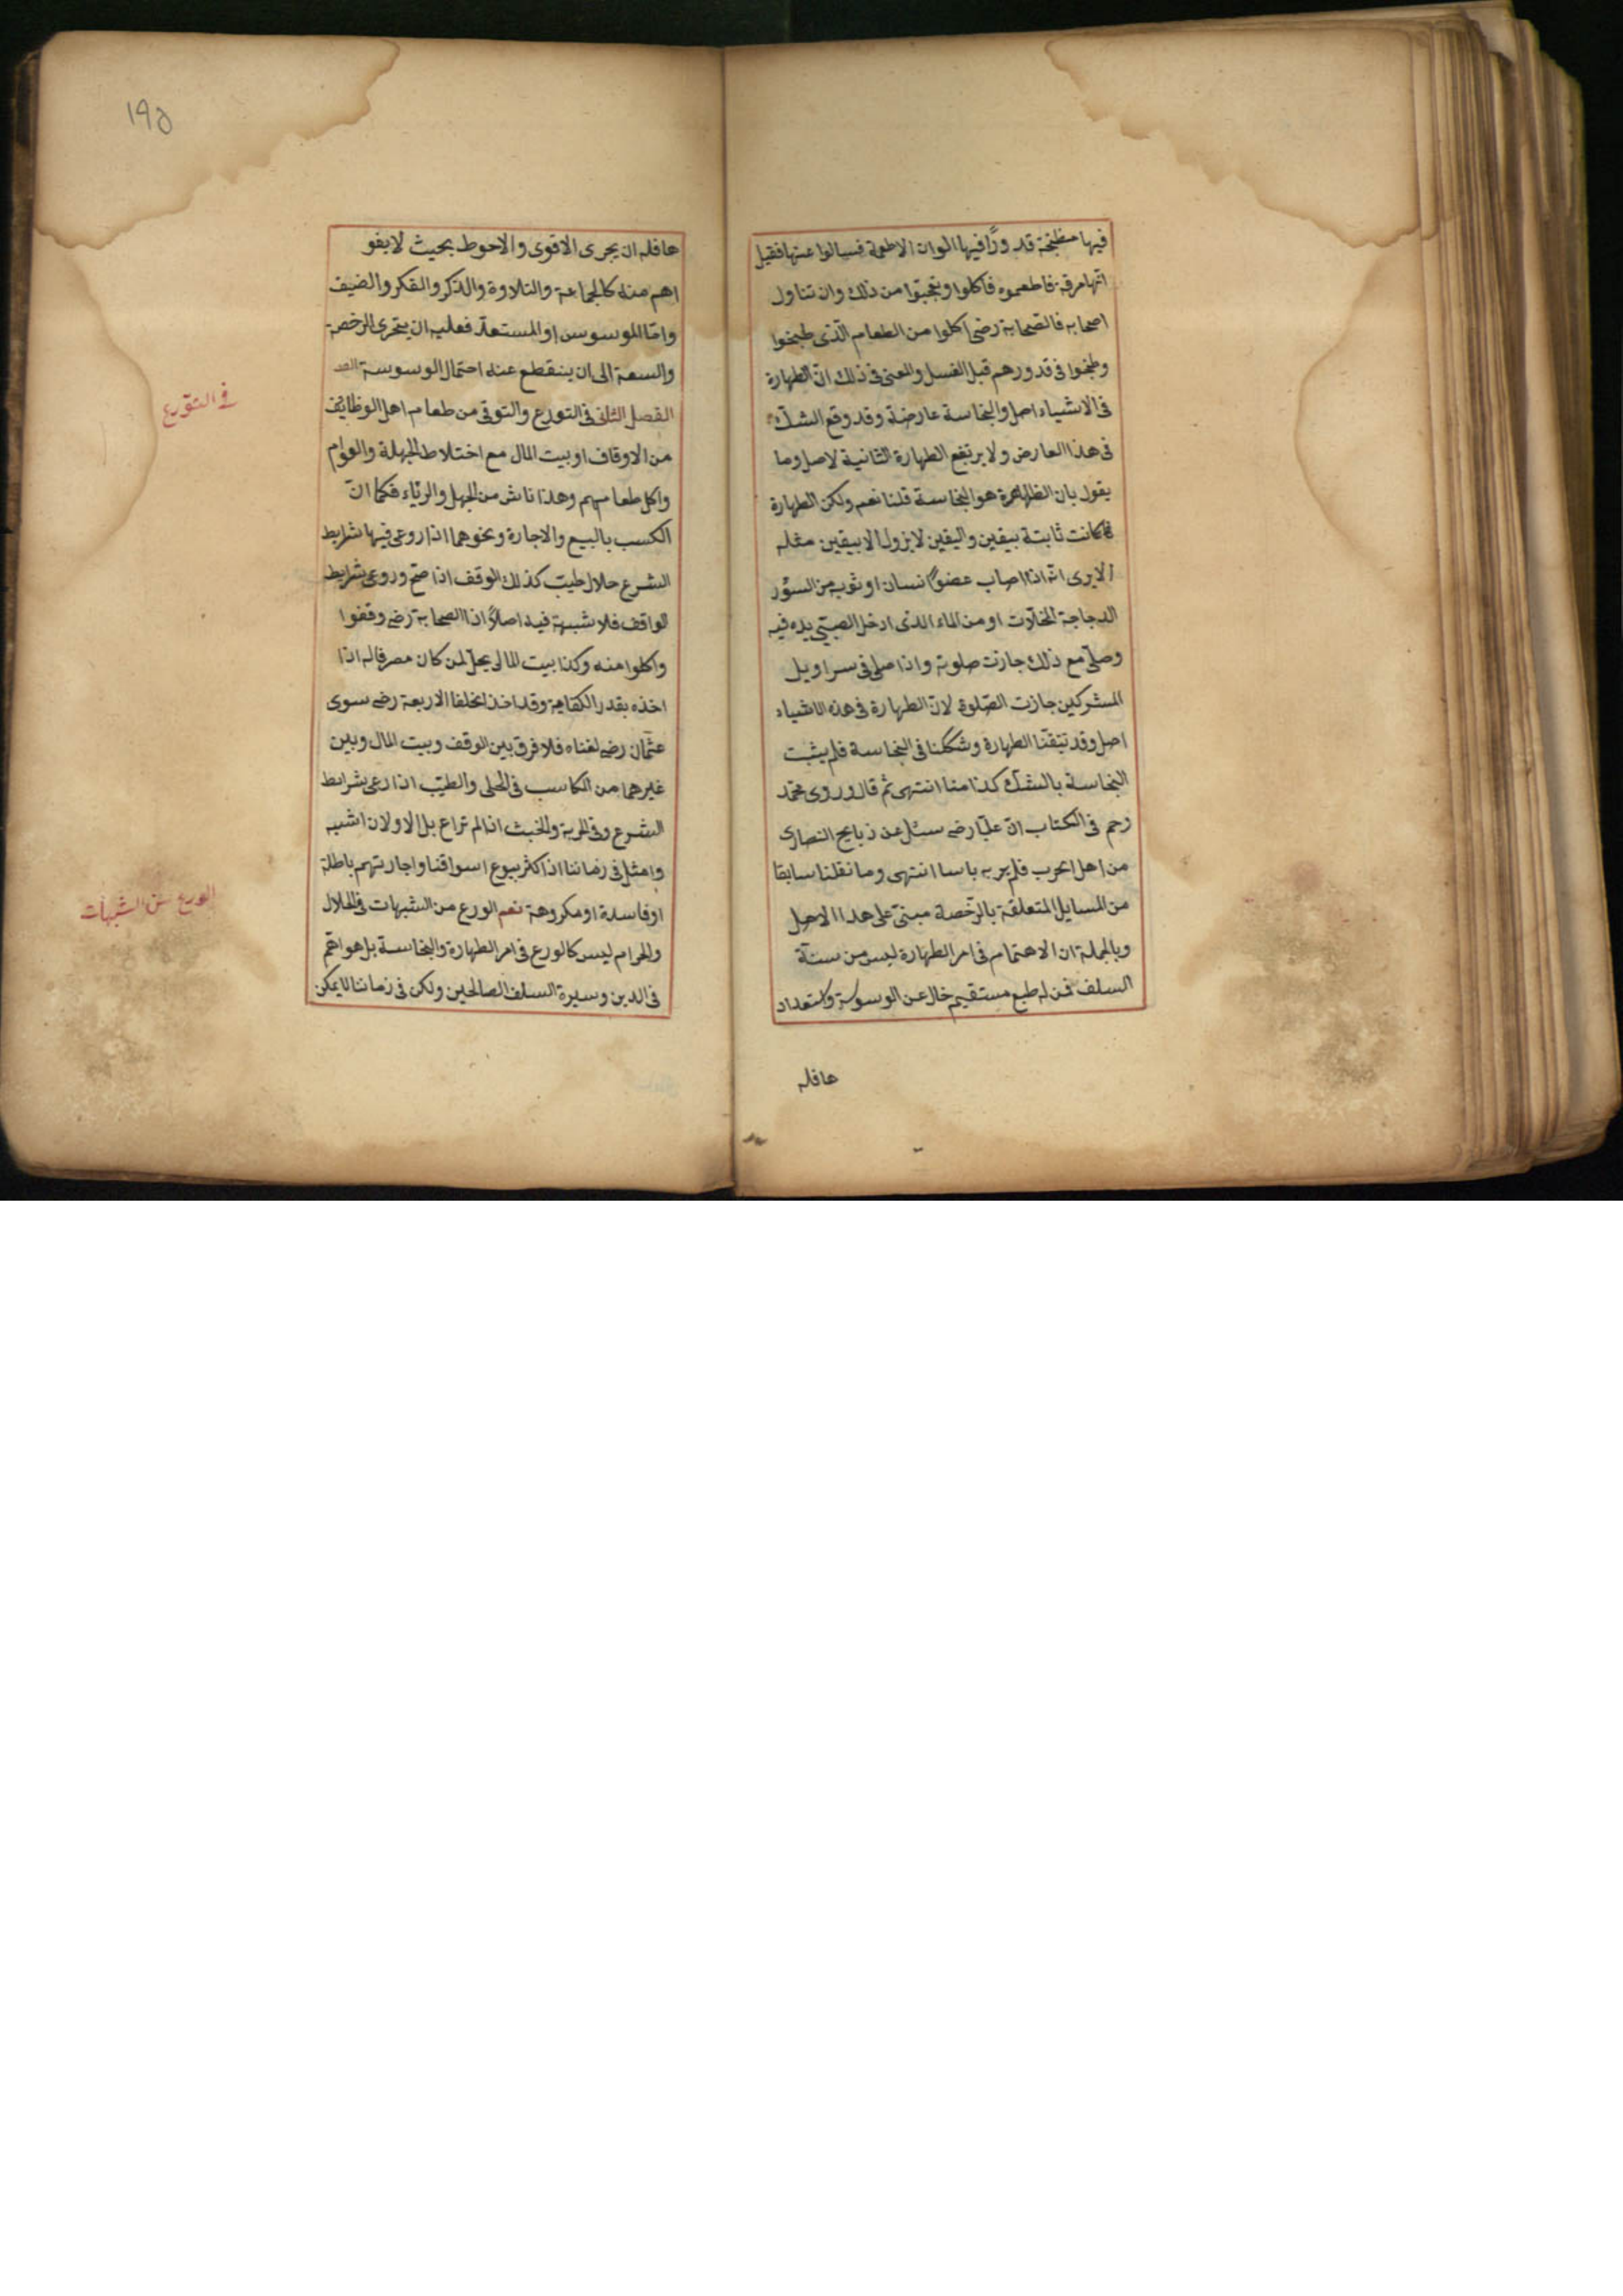 فيها مطبخة قدورًا فيها الوان الاطعمة فسالوا عنها فقيل
انها مرقة فاطعموه فاكلوا وتعجبوا من ذلك وان تناول
اصحابه فالصحابة رضى اكلوا من الطعام الذى طبخوا
وطبخوا فى قدورهم قبل الغسل والمعنى فى ذلك ان الطهارة
فى الاشياء اصل والنجاسة عارضة وقد وقع الشك
فى هذا العارض ولا يرتفع الطهارة الثانية لاصل وما
يقول بان الظاهرة هو النجاسة قلنا نعم ولكن الطهارة
كانت ثابتة بيقين واليقين لا يزول الا بيقين مثله
الا يرى انه اذا اصاب عضوًا نسان او ثوب من السؤر
الدجاجة المخلات او من الماء الذى ادخل الصبى يده فيه
وصلى مع ذلك جازت صلوته واذا صلى فى سراويل
المشركين جازت الصلوة لان الطهارة فى هذه الاشياء
اصل وقد تيقنا الطهارة وشككنا فى النجاسة فلم يثبت
النجاسة بالشك كذا منا انتهى ثم قال وروى محمد
رحم فى الكتاب ان عليا رضى سئل عن ذبايح النصارى
من اهل الحرب فلم ير به باسا انتهى وما نقلنا سابقا
من المسايل المتعلقة بالرخصة مبنى على هذا الاصل
وبالجملة ان الاهتمام فى امر الطهارة ليس من سنة
السلف فمن له طبع مستقيم خال عن الوسوسة واستعداد
عافله
١٩٥
عافله ان يجرى الاقوى والاحوط بحيث لا يفو
اهم منه كالجماعة والتلاوة والذكر والفكر والضيف
واما الموسوس او المستعد فعليه ان يتحرى الرخصة
والسعة الى ان ينقطع عنه احتمال الوسوسة
الفصل الثانى فى التورع والتوقى من طعام اهل الوظائف
من الاوقاف او بيت المال مع اختلاط الجهلة والعوام
واكل طعامهم وهذا ناش من الجهل والرياء فكما ان
الكسب بالبيع والاجارة ونحوهما اذا روعى فيها شرايط
الشرع حلال طيب كذلك الوقف اذا صح وروعى شرايط
الواقف فلا شبهة فيه اصلاً اذا الصحابة رضى وقفوا
واكلوا منه وكذا بيت المال يحل لمن كان مصرفا له اذا
اخذه بقدر الكفاية وقد اخذ الخلفا الاربعة رضى سوى
عثمان رضى لغناه فلا فرق بين الوقف وبيت المال وبين
غيرهما من المكاسب فى الحلى والطيب اذا رعى شرايط
الشرع وفى الحرمة والخبث اذا لم تراع بل الاولان اشبه
وامثل فى زماننا اذ اكثر بيوع اسواقنا واجارتهم باطلة
او فاسدة او مكروهة نعم الورع من الشبهات فى الحلال
والحرام ليس كالورع فى امر الطهارة والنجاسة بل هو اهم
فى الدين وسيرة السلف الصالحين ولكن فى زماننا لا يمكن
فى التورع
الورع عن الشبهات